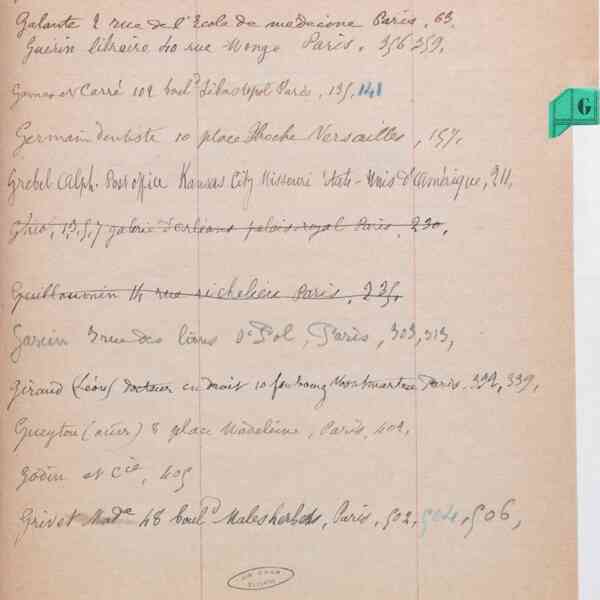 Galante 2 rue de l'Ecole de medecine Paris, 63
Guerin libraire 40 rue Monge Paris, 356 359,
et Carré 102 boul.d Sébastopol Paris, 135, 141
Germain dentiste 10 place Hoche Versailles, 157,
Grebel Alph. Post office Kansas City Missouri Etats-Unis d'Amérique, 211,
Ghio, 1, 3, 5, 7 galerie d'orléans palais royal Paris, 230,
Guillaumin 14 rue richelieu Paris, 235,
3 rue des lions St Pol, Paris, 303, 313,
Giraud (Léon) docteur en droit 10 faubourg Montmartre Paris, 332, 339,
Gueyton (aîné) 8 place Madeleine, Paris, 402,
Godin et Cie, 405
Grivet Made 48 boul.d Malesherbes, Paris, 502, 504, 506,
G